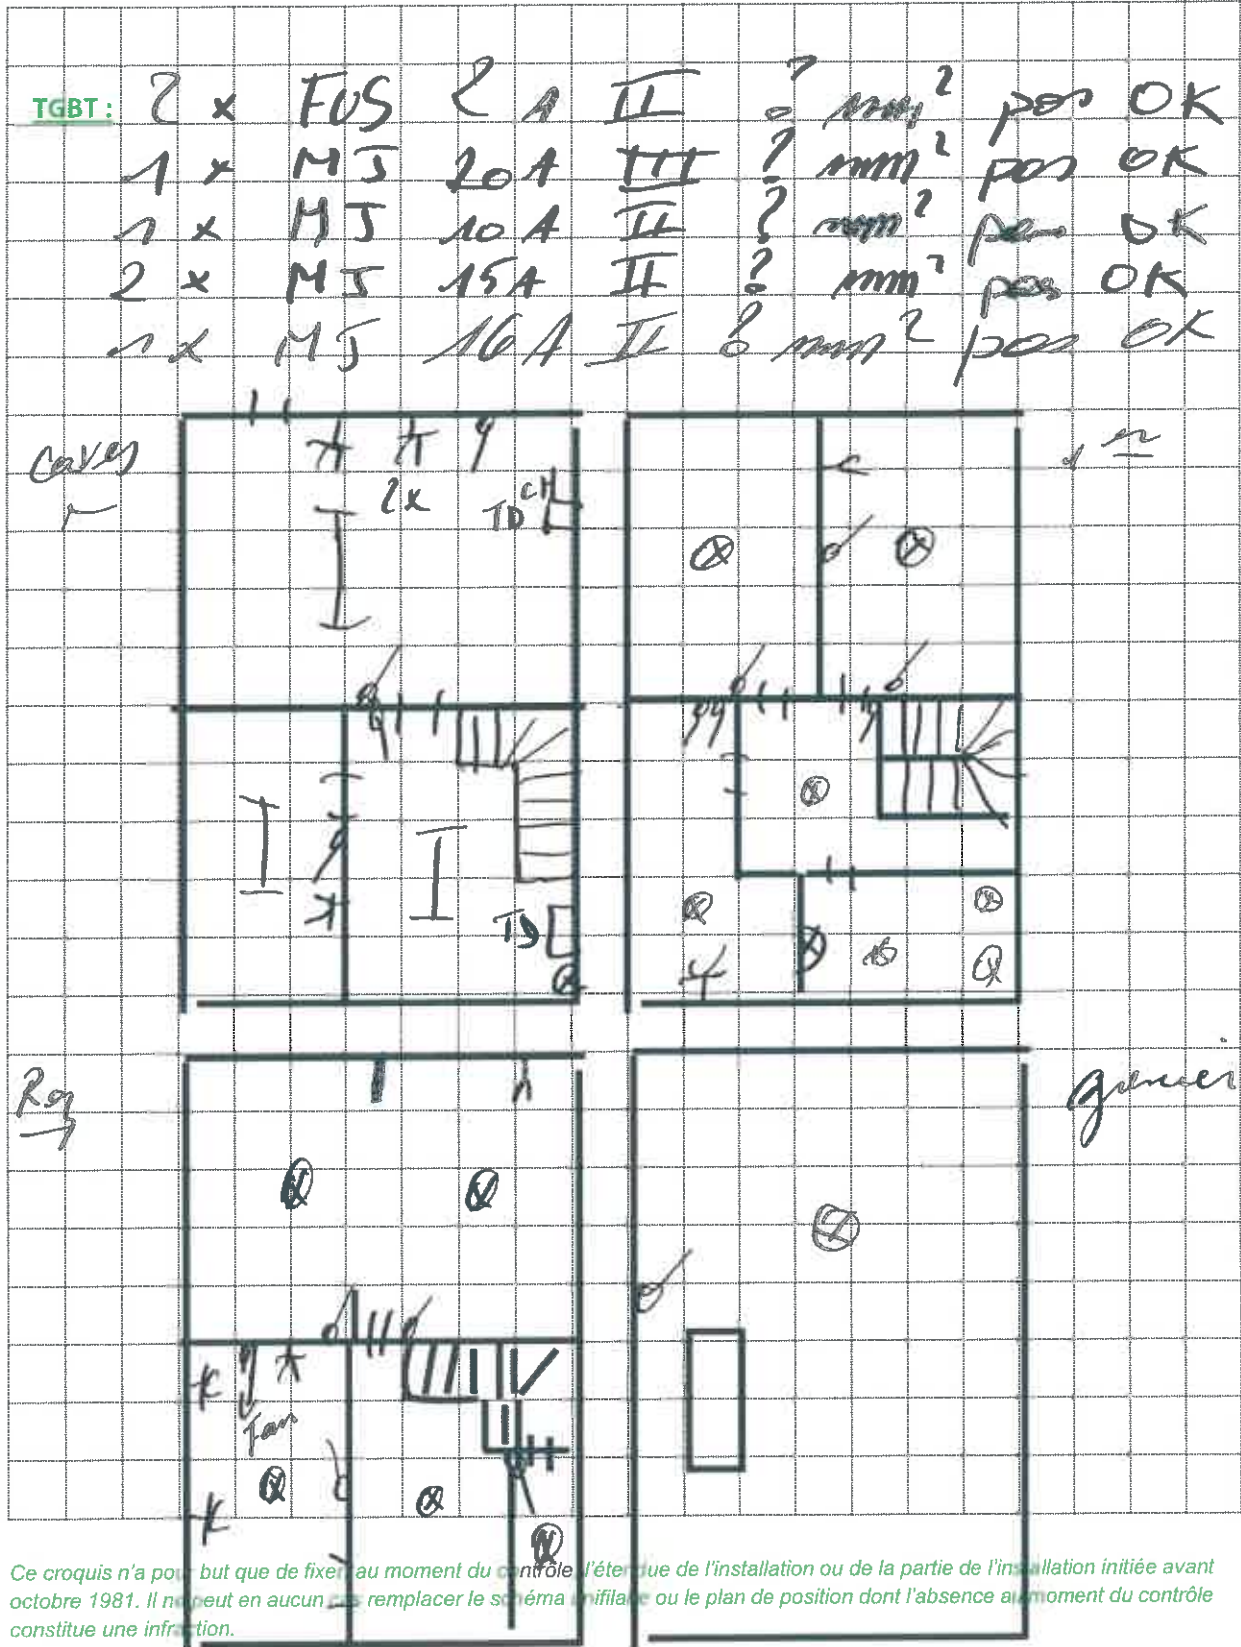 TGBT : 2 x FUS ? A II ? mm² pas OK
1 x MJ 20A III ? mm² pas OK
1 x MJ 10A II ? mm² pas OK
2 x MJ 15A II ? mm² pas OK
1x MJ 16A II ? mm² pas OK
Caves
2x
TD CH
1er
TD
Rez
grenier
Ce croquis n'a pour but que de fixer au moment du contrôle, l'étendue de l'installation ou de la partie de l'installation initiée avant
octobre 1981. Il ne peut en aucun cas remplacer le schéma unifilaire ou le plan de position dont l'absence au moment du contrôle
constitue une infraction.